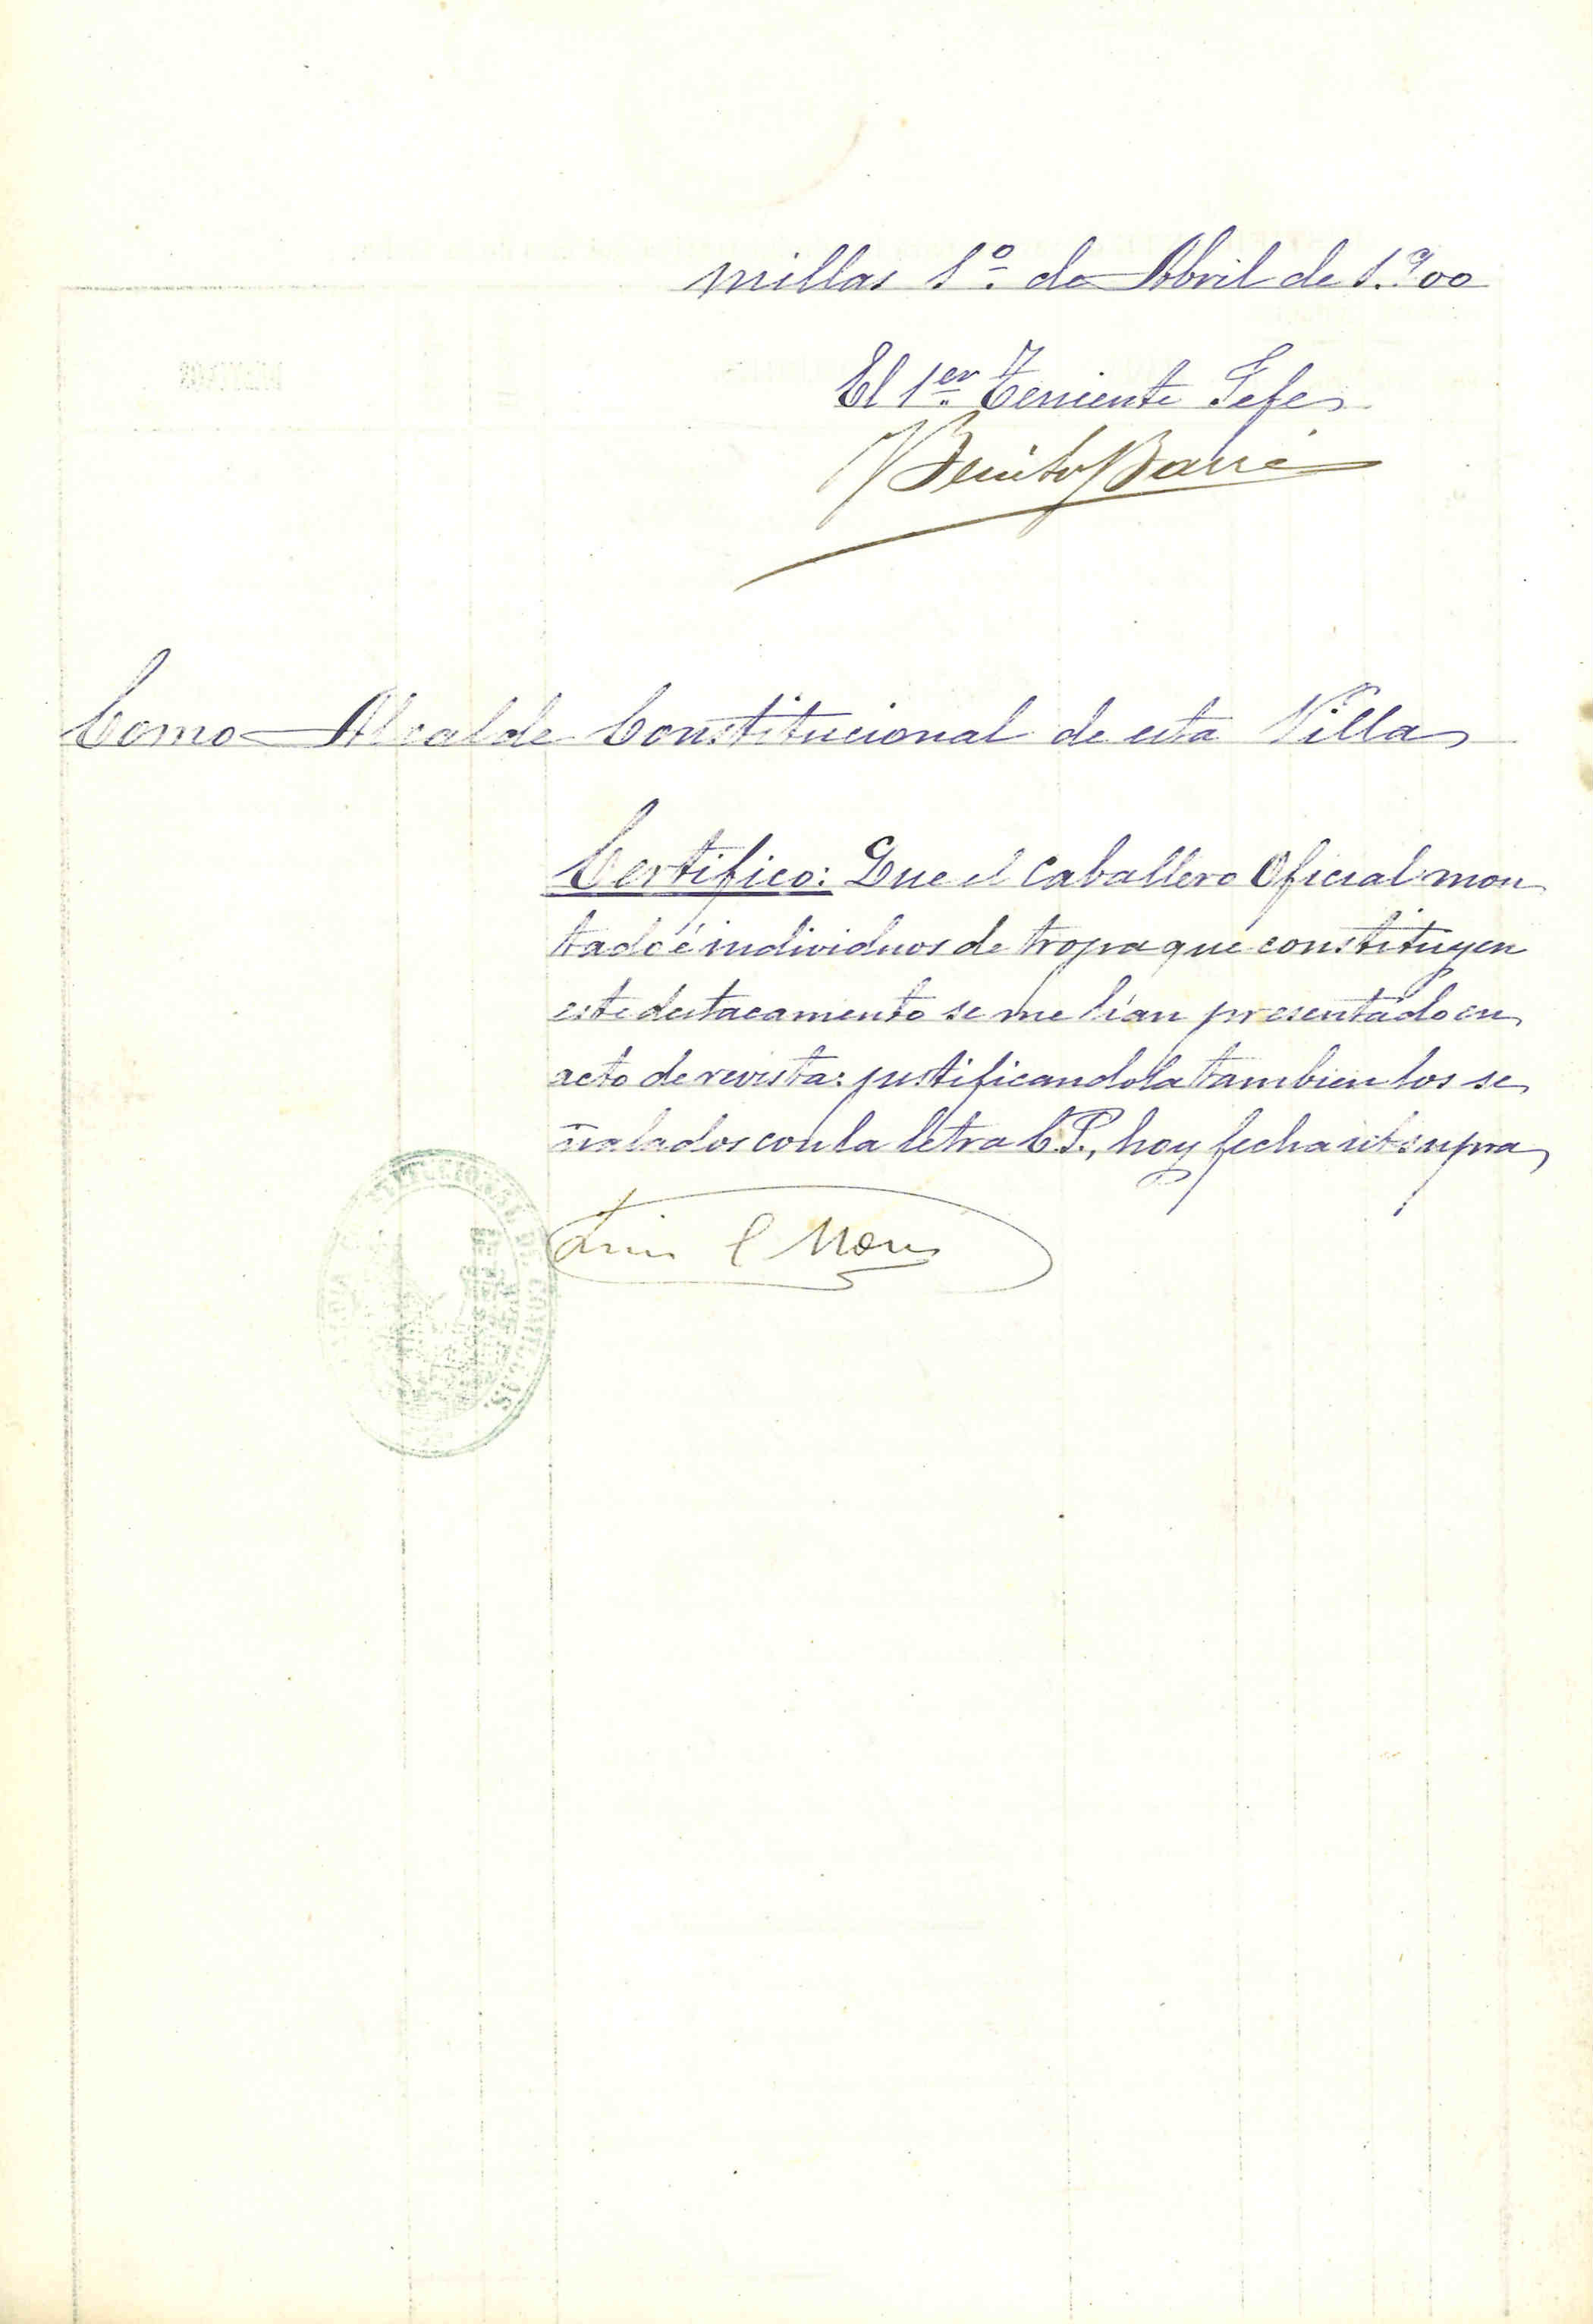 millas 1º de Abril de 1.900
El 1er Teniente Gefe
Benito
Como Alcalde Constitucional de esta Villa
Certifico: Que el Caballero Oficial mon
tado é individuos de tropa que constituyen
este destacamento se me han presentado en
acto de revista: justificandola tambien los se
ñalados con la letra C.P., hoy fecha ut supra